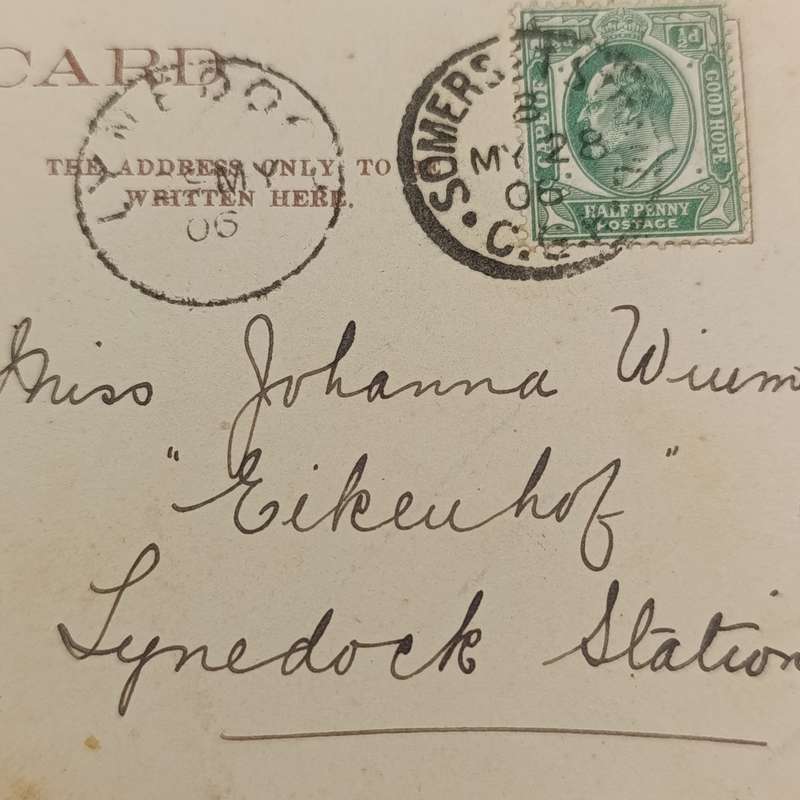 CARD
THE ADDRESS ONLY TO BE
WRITTEN HERE.
LYNEDOC
MY
06
SOMERS
MY 28
06
C.
CAPE OF GOOD HOPE
½d
HALFPENNY
POSTAGE
Miss Johanna Wium
"Eikenhof"
Lynedock Station